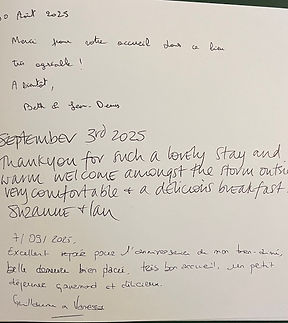 0 Août 2025
Merci pour votre accueil dans ce lieu
très agréable !
A bientôt,
Beth & Jean-Denis
September 3rd 2025
Thankyou for such a lovely stay and
warm welcome amongst the storm outside
very comfortable + a delicious breakfast.
Suzanne + Ian
7/09/2025.
Excellent repas pour l'anniversaire de mon bien-aimé,
belle demeure bien placée, très bon accueil, un petit
déjeuner gourmand et délicieux.
Guillaume &